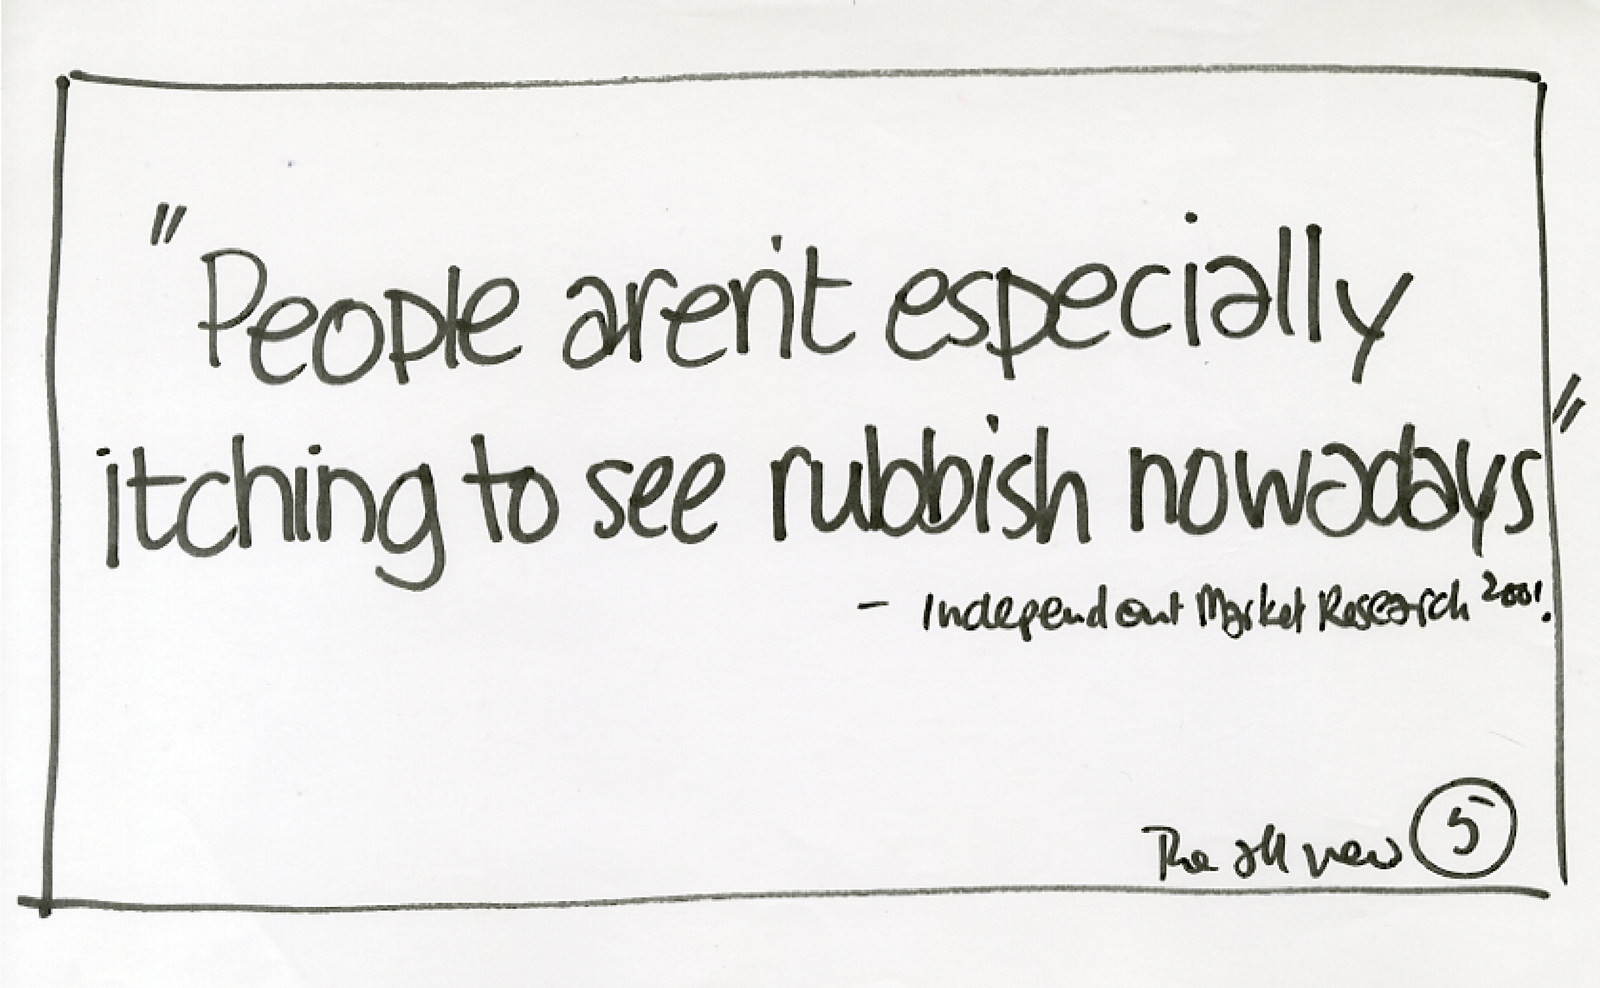 "People aren't especially
itching to see rubbish nowadays"
- Independent Market Research 2001.
The all new 5